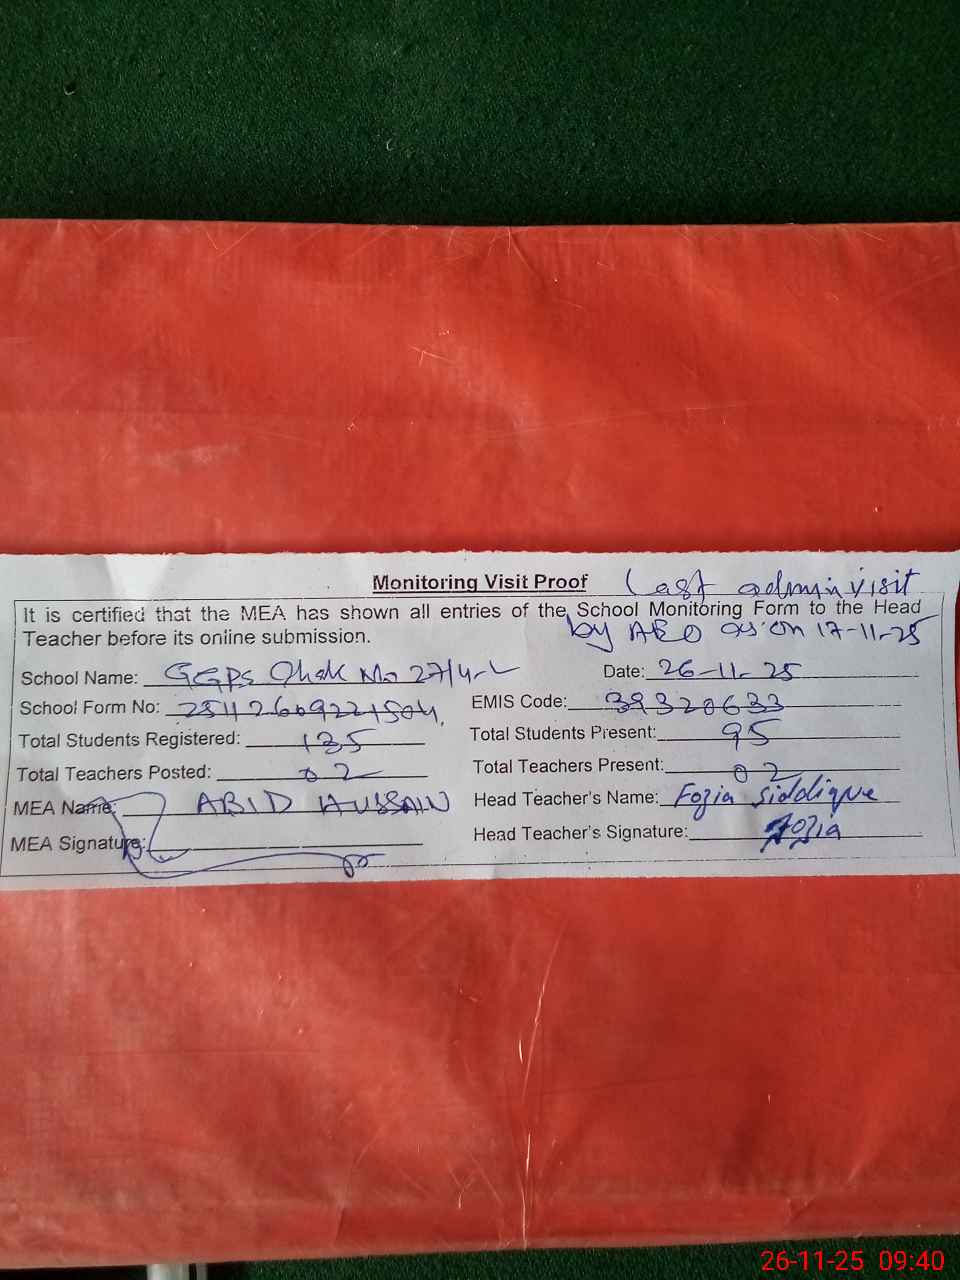 Monitoring Visit Proof Last admin visit
It is certified that the MEA has shown all entries of the School Monitoring Form to the Head
by AEO as on 17-11-25
Teacher before its online submission.
School Name: GGPS Chak No 27/4-L Date: 26-11-25
School Form No: EMIS Code: 39320633
Total Students Registered: 135 Total Students Present: 95
Total Teachers Posted: 02 Total Teachers Present: 02
MEA Name: ABID HUSSAIN Head Teacher's Name: Fozia Siddique
MEA Signature: Head Teacher's Signature: Fozia
26-11-25 09:40